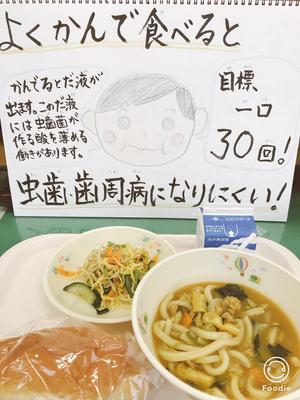 よくかんで食べると
かんでるとだ液が
出ます。このだ液
には虫歯菌が
作る酸を薄める
働きがあります。
目標
一口
30回!
虫歯、歯周病になりにくい!
Foodie